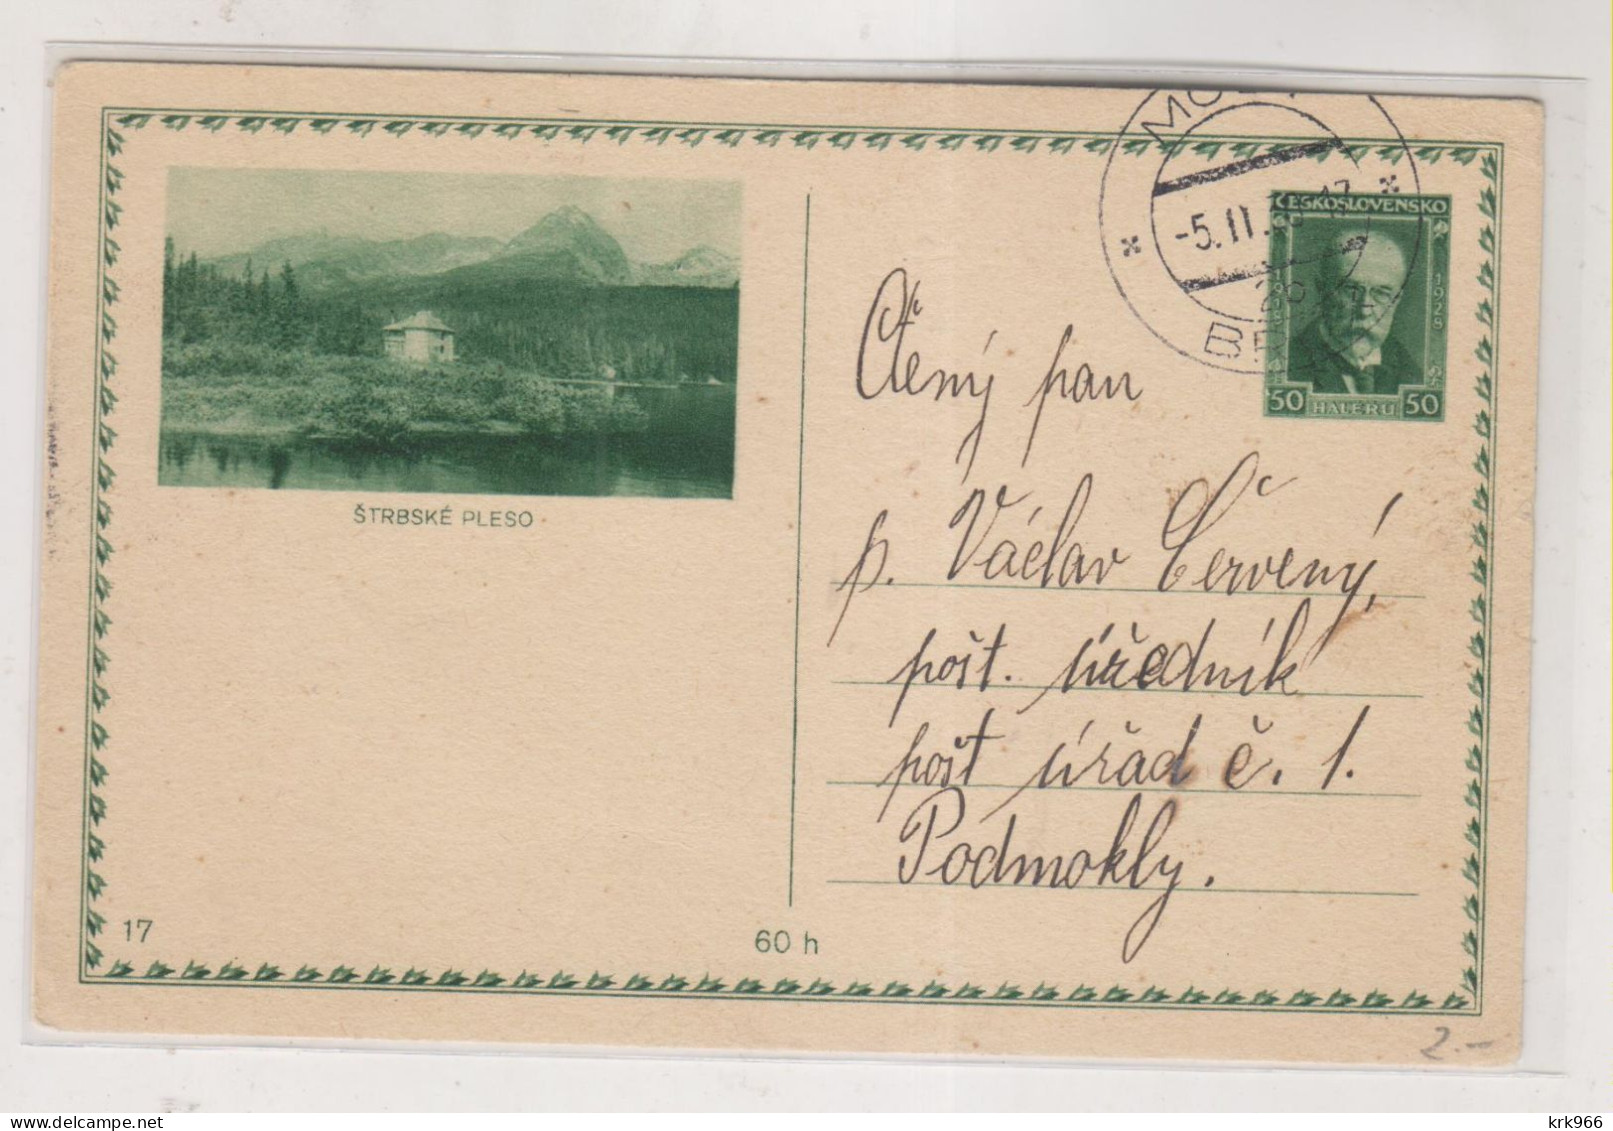 -5.II.
ČESKOSLOVENSKO
1918 1928
50 HALÉŘŮ 50
ŠTRBSKÉ PLESO
Ctěný pan
p. Václav Červený,
pošt. úředník
pošt úřad č. 1.
Podmokly.
17
60 h
2.-
delcampe.net
krk966